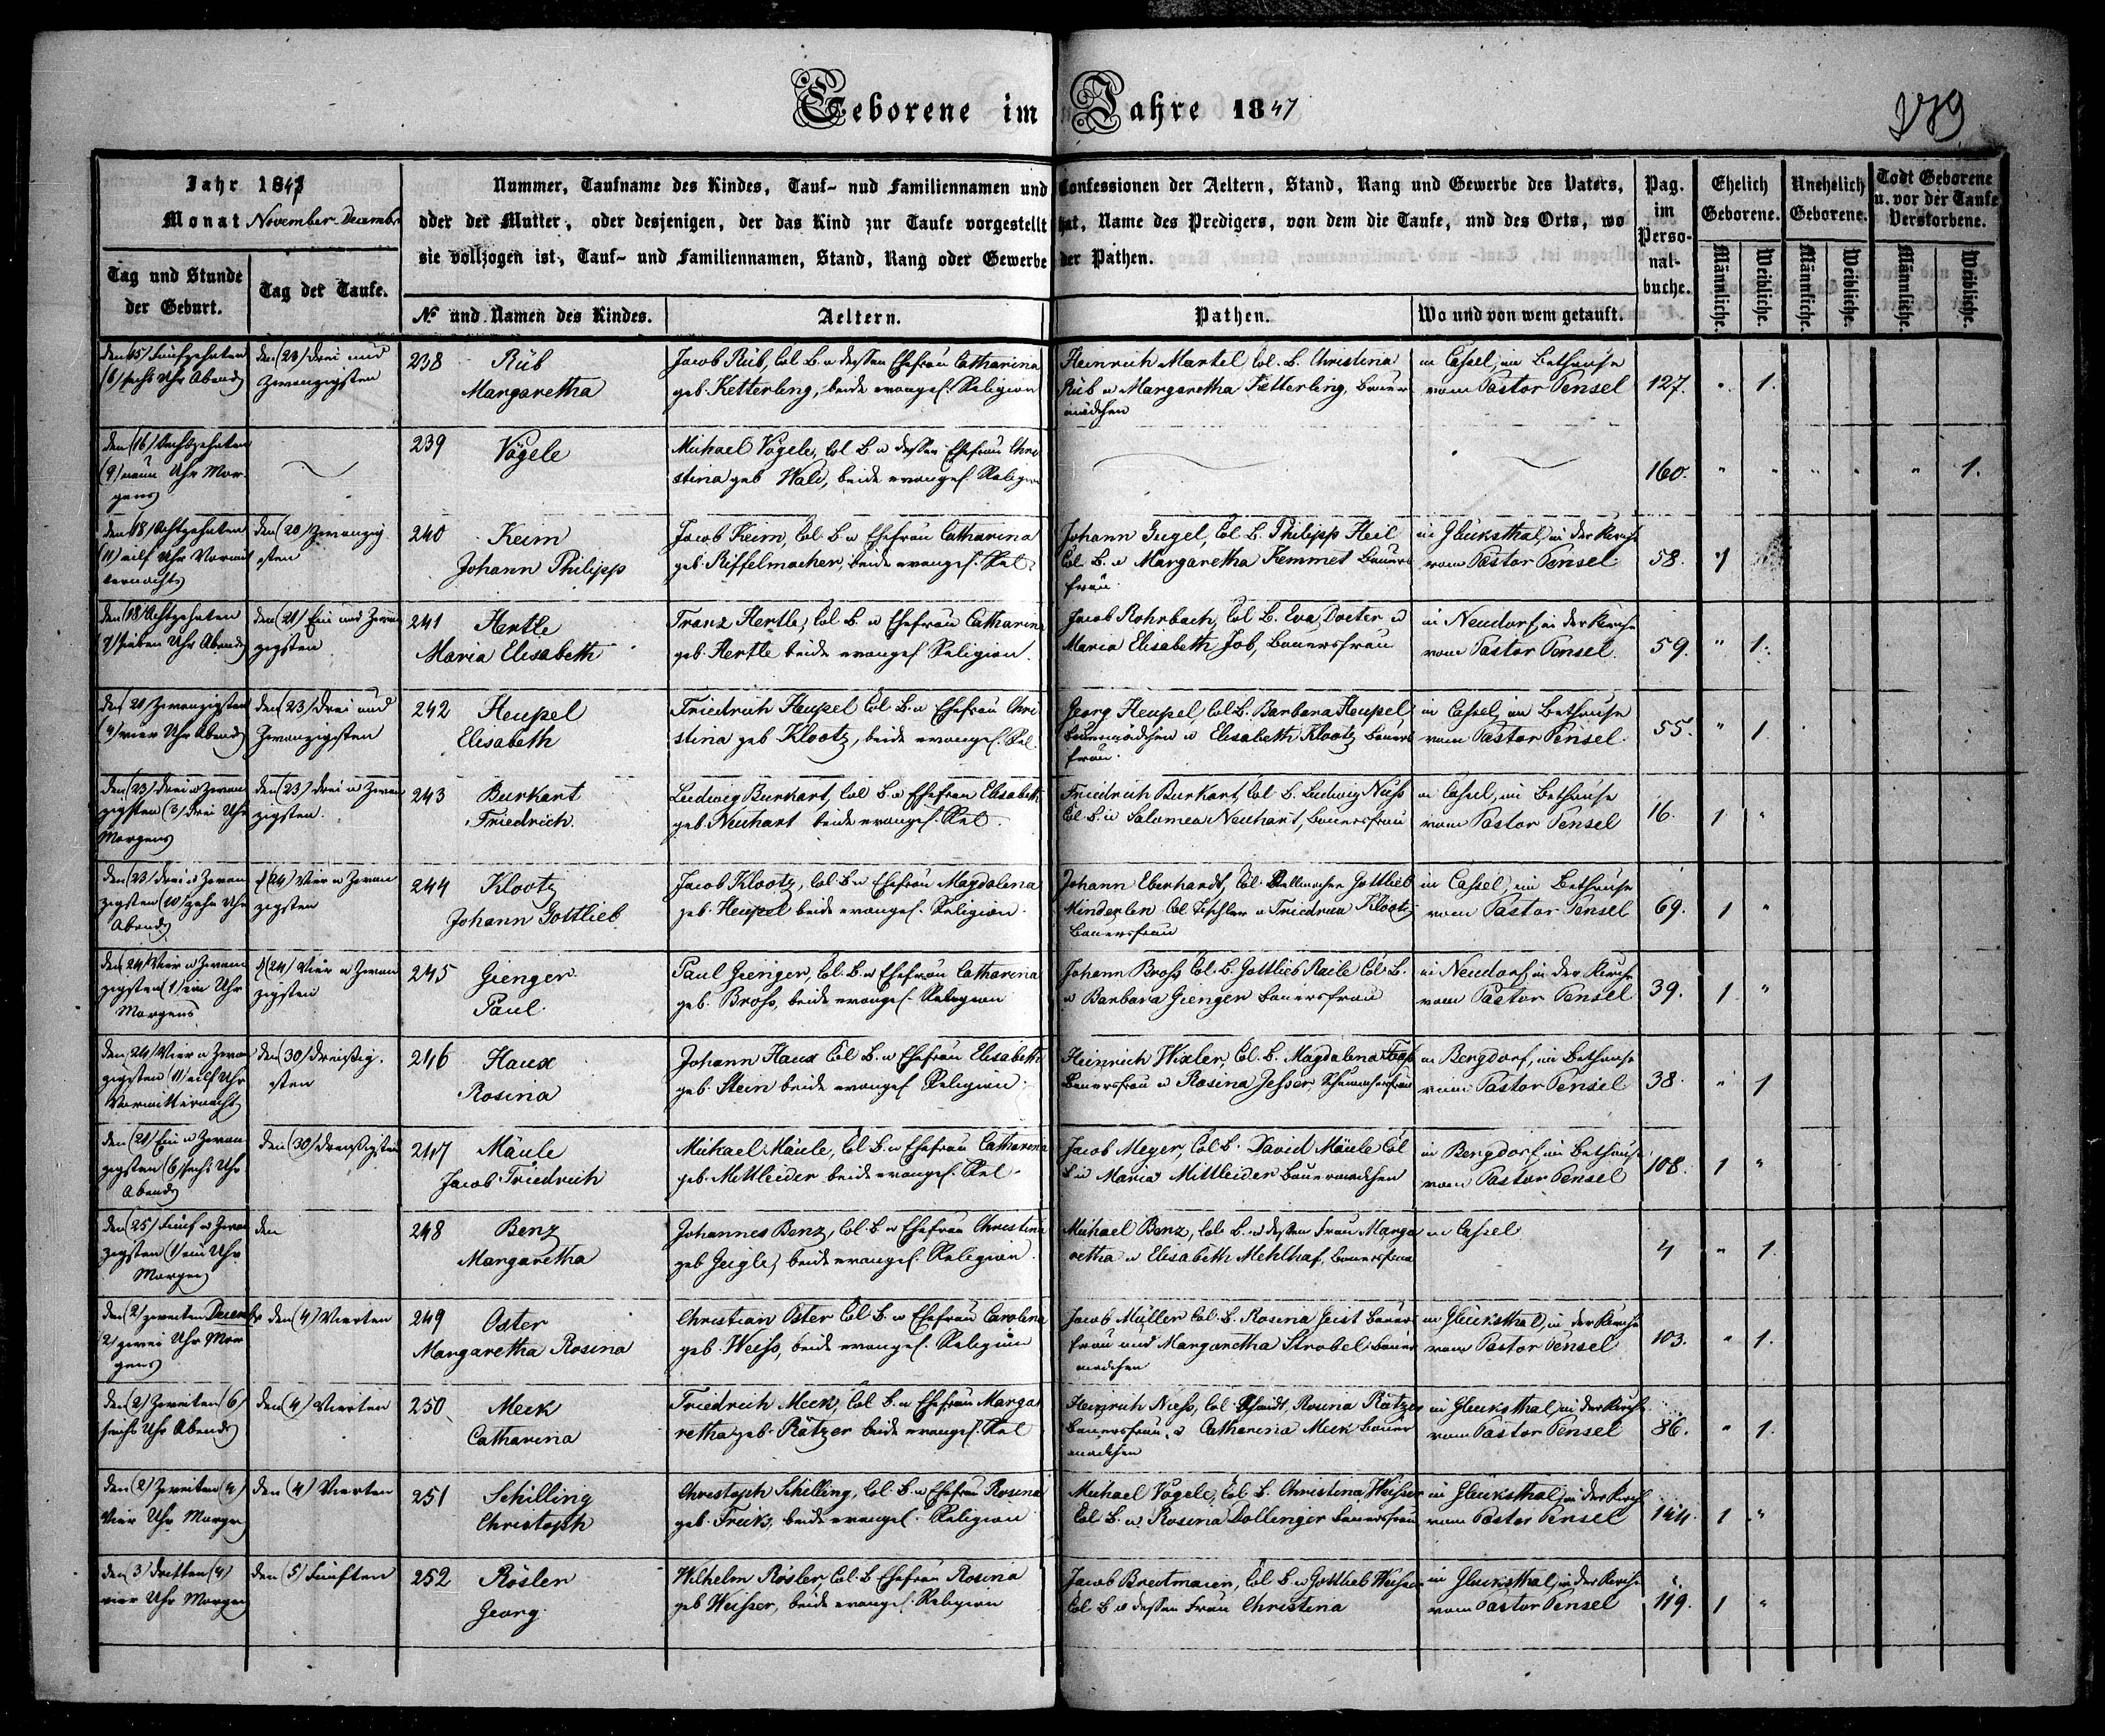 Geborene im Jahre 1847
179
Jahr 1847
Monat November-December
Nummer, Taufname des Kindes, Tauf- nud Familiennamen und Confessionen der Aeltern, Stand, Rang und Gewerbe des Vaters,
oder der Mutter, oder desjenigen, der das Kind zur Taufe vorgestellt hat, Name des Predigers, von dem die Taufe, und des Orts, wo
sie vollzogen ist, Tauf- und Familiennamen, Stand, Rang oder Gewerbe der Pathen.
Pag. im Perso-nal-buche.
Ehelich Geborene.
Unehelich Geborene.
Todt Geborene u. vor der Taufe Verstorbene.
Tag und Stunde der Geburt.
Tag der Taufe.
No und Namen des Kindes.
Aeltern.
Pathen.
Wo und von wem getauft.
Männliche. Weibliche. Männliche. Weibliche. Männliche. Weibliche.
den (15) Fünfzehnten den (23) drei und 238 Rüb Jacob Rüb, Col. B. u dessen Ehefrau Catharina Heinrich Martel, Col. B. Christina in Cassel, im Bethause
(6) sechs Uhr Abends Zwanzigsten Margaretha geb. Ketterling, beide evangel. Religion Rüb u Margaretha Ketterling, Bauer vom Pastor Pensel 127. " 1.
mädchen
den (16) Sechszehnten 239 Vögele Michael Vögele, Col B u dessen Ehefrau Chri
(9) neun Uhr Mor stina geb Wald, beide evangel. Religion 160. " " " " " 1.
gens
den (18) Achtzehnten den (20) Zwanzig 240 Keim Jacob Keim Col. B u Ehefrau Catharina Johann Gugel, Col B. Philipp Heil in Glücksthal, in der Kirche
(11) eilf Uhr Vormit sten Johann Philipp geb. Riffelmacher, beide evangel. Rel. Col. B. u Margaretha Kemmet Bauers vom Pastor Pensel 58. 1
ternachts frau
den (18) Achtzehnten den (21) Ein und Zwan 241 Hertle Franz Hertle, Col B. u Ehefrau Catharina Jacob Rohrbach, Col B. Eva Docter u in Neudorf, in der Kirche
7) sieben Uhr Abends zigsten Maria Elisabeth geb. Hertle beide evangel. Religion. Maria Elisabeth Job, Bauersfrau vom Pastor Pensel. 59. " 1.
den (20) Zwanzigsten den (23) Drei und 242 Heupel Friedrich Heupel Col B. u Ehefrau Chri Georg Heupel, Col B. Barbara Heupel in Cassel, im Bethause
(4) vier Uhr Abends Zwanzigsten Elisabeth stina geb Klootz, beide evangel. Rel. Bauermädchen u Elisabeth Klootz Bauers vom Pastor Pensel. 55. " 1
frau.
den (23) Drei u Zwan den (23) Drei u Zwan 243 Burkart Ludwig Burkart, Col B. u Ehefrau Elisabeth Friedrich Burkart, Col B. Ludwig Nuss in Cassel, im Bethause
zigsten (3) drei Uhr zigsten. Friedrich. geb. Neuhart beide evangel. Rel. Col. B. u Salomea Neuhart, Bauersfrau vom Pastor Pensel 16. 1 "
Morgens
den (23) Drei u Zwan d (24) Vier u Zwan 244 Klootz Jacob Klootz, Col B u Ehefrau Magdalena Johann Eberhardt, Col. Gottlieb in Cassel, im Bethause
zigsten (10) zehn Uhr zigsten Johann Gottlieb geb. Heupel beide evangel. Religion. Minderlen Col Tischler u Klootz vom Pastor Pensel 69. 1 "
Abends Bauersfrau
den (24) Vier u Zwan d (24) Vier u Zwan 245 Gienger Paul Gienger, Col. B. u Ehefrau Catharina Johann Bross Col. B. Gottlieb Raile Col. B. in Neudorf, in der Kirche
zigsten (1) ein Uhr zigsten Paul. geb. Bross, beide evangel. Religion u Barbara Gienger Bauersfrau vom Pastor Pensel 39. 1. "
Morgens
den (24) Vier u Zwan den (30) dreißig. 246 Haux Johann Haux Col B. u Ehefrau Elisabeth Heinrich Wixler, Col. B. Magdalena in Bergdorf, im Bethause
zigsten (11) eilf Uhr sten Rosina geb. Stein beide evangel. Religion. Bauersfrau u Rosina Jesser, Schumachersfrau vom Pastor Pensel 38. " 1
Vormitternacht
den (21) Ein u Zwan den (30) dreißigsten 247 Mäule Michael Mäule, Col B. u Ehefrau Catharina Jacob Meyer, Col B. David Mäule Col in Bergdorf, im Bethause
zigsten (6) sechs Uhr Jacob Friedrich geb. Mittleider beide evangel. Rel. B u Maria Mittleider Bauermädchen vom Pastor Pensel 108. 1 "
Abends
den (25) Fünf u Zwan den 248 Benz Johannes Benz, Col. B u Ehefrau Christina Michael Benz, Col. B. u dessen Frau Marga in Cassel
zigsten (1) ein Uhr Margaretha geb Geigle, beide evangel. Religion. retha u Elisabeth Mehlhaf, Bauersfrau 4 " 1.
Morgens
den (2) zweiten December den (4) Vierten 249 Oster Christian Oster Col B. u Ehefrau Carolina Jacob Müller Col. B. Rosina Geist Bauers in Glücksthal, in der Kirche
2) zwei Uhr Mor Margaretha Rosina geb. Weiss, beide evangel. Religion frau und Margaretha Strobel Bauer vom Pastor Pensel 103. " 1.
gens mädchen
den (2) Zweiten (6) den (4) Vierten 250 Meck Friedrich Meck, Col B. u Ehefrau Marga Heinrich Nuss, Col. Schmidt, Rosina Rätzer in Glücksthal, in der Kirche
sechs Uhr Abends Catharina retha geb. Rätzer beide evangel. Rel Bauersfrau, u Catharina Meck Bauer vom Pastor Pensel 86. " 1.
mädchen
den (2) Zweiten (4) den (4) Vierten 251 Schilling Christoph Schilling, Col. B. u Ehefrau Rosina Michael Vögele, Col B. Christina Weisser in Glücksthal, in der Kirche
Vier Uhr Morgen Christoph geb. Fricks, beide evangel. Religion Col. B. u Rosina Dollinger Bauersfrau vom Pastor Pensel 144. 1 "
den (3) dritten (4) den (5) Fünften 252 Rösler Wilhelm Rösler, Col. B Ehefrau Rosina Jacob Breitmaier, Col B. u Gottlieb Weisser in Glücksthal, in der Kirche
vier Uhr Morgen Georg. geb Weisser, beide evangel. Religion Col B u dessen Frau Christina vom Pastor Pensel 119. 1 "